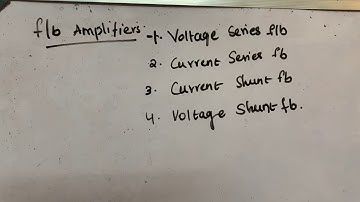 f/b Amplifiers:- 1. Voltage Series f/b
2. Current Series fb
3. Current Shunt fb
4. Voltage Shunt fb.